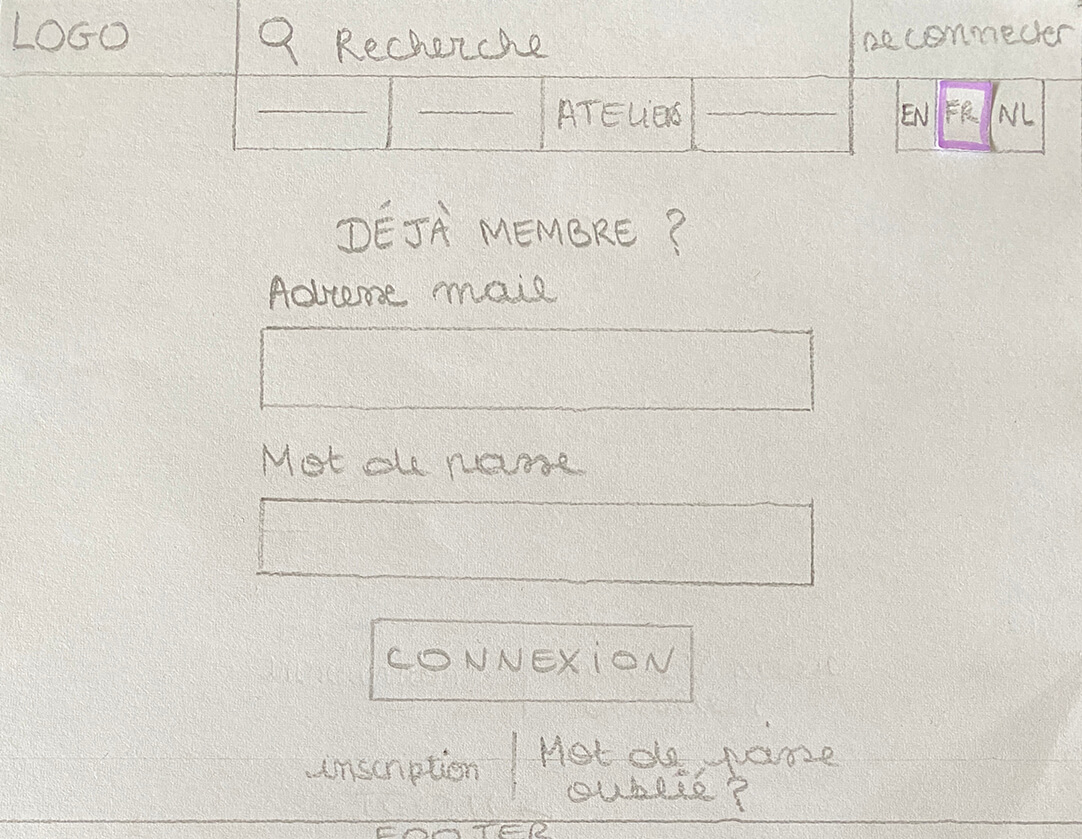 LOGO
Recherche
se connecter
ATELIERS
EN FR NL
DÉJÀ MEMBRE ?
Adresse mail
Mot de passe
CONNEXION
inscription | Mot de passe
oublié ?
FOOTER